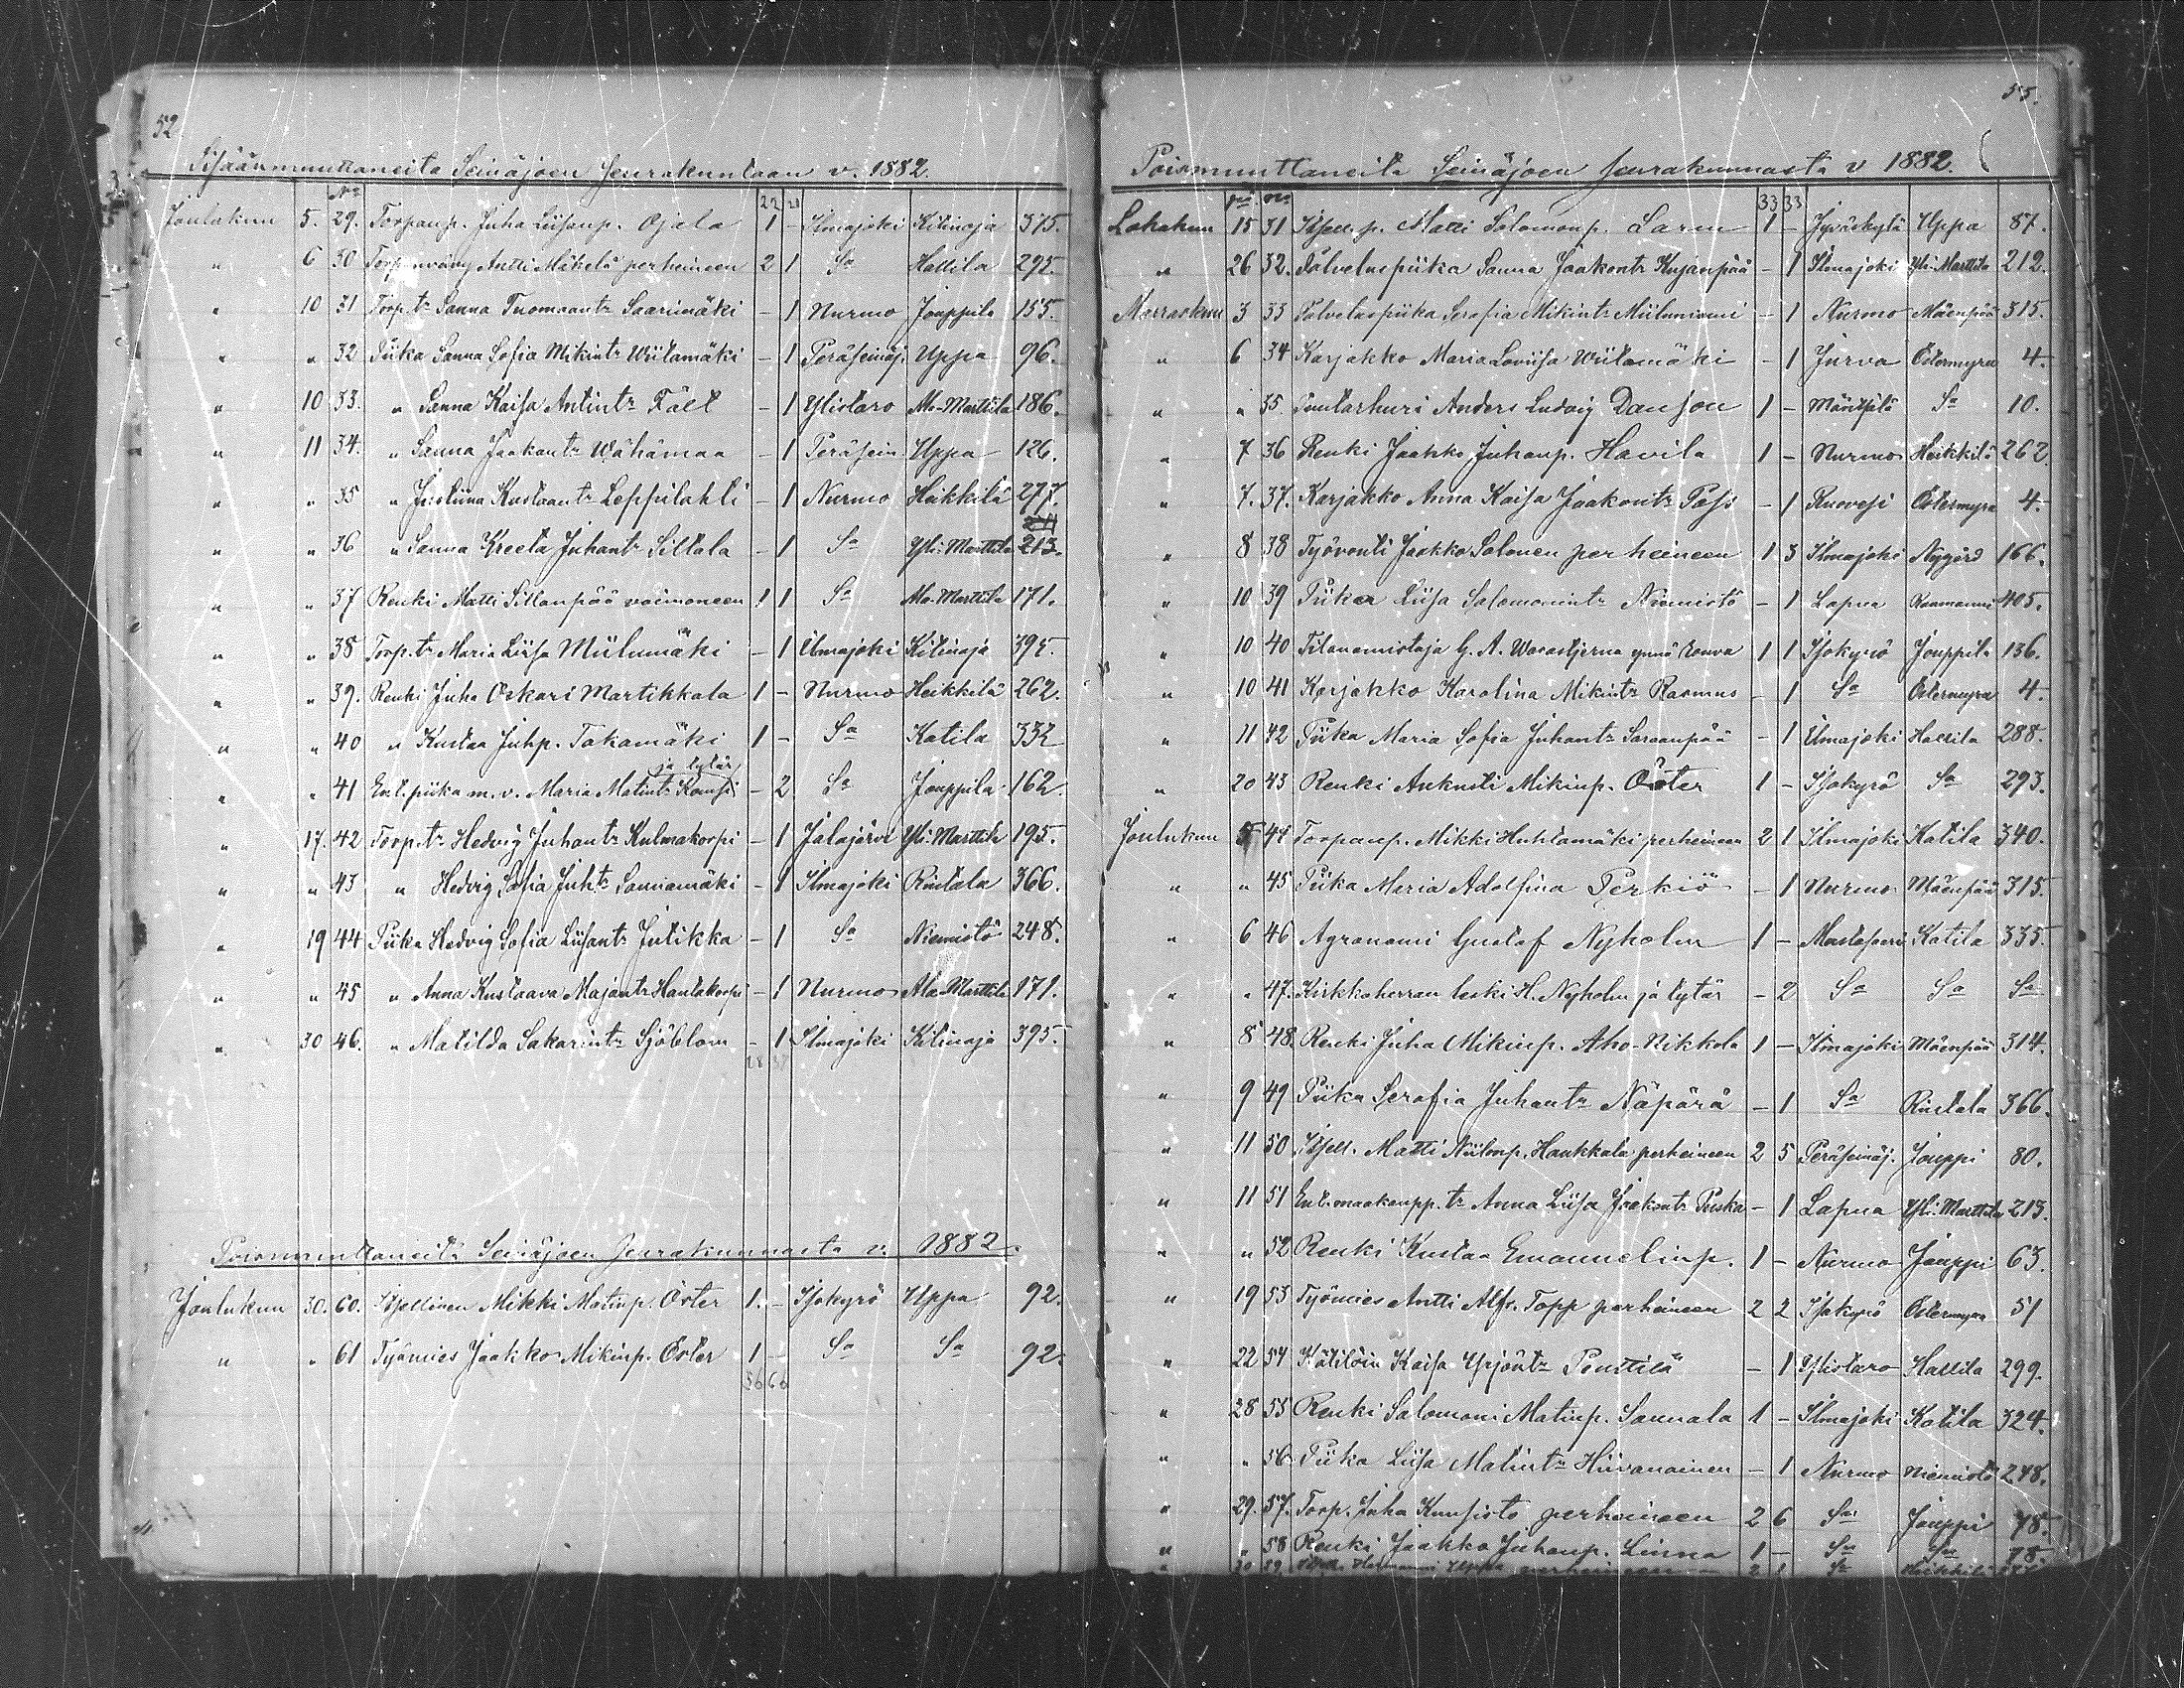 52
Sisäänmuuttaneita Seinäjoen seurakuntaan v. 1882.
No 22 21
Joulukuu 5. 29. Torpanp. Juha Liisanp. Ojala 1 - Ilmajoki Kitinoja 375.
" 6 30 Antti Mäkelä perheineen 2 1 Sa Hallila 295.
" 10 31 Torp.tr Sanna Tuomaantr Saarimäki - 1 Nurmo Jouppila 155.
" " 32 Piika Sanna Sofia Mikintr Wiitamäki - 1 Peräseinäj. Uppa 96.
" 10 33. " Sanna Kaisa Antintr Fält - 1 Ylistaro Ala-Marttila 186.
" 11 34. " Sanna Jaakontr Wähämaa - 1 Peräsein Uppa 126.
" " 35 " Justiina Kustaantr Leppilahti - 1 Nurmo Heikkilä 277.
" " 36 " Sanna Kreeta Juhantr Siltala - 1 Sa Yli-Marttila 213.
" " 37 Renki Matti Sillanpää vaimoneen 1 1 Sa Ala-Marttila 171.
" " 38 Torp.tr Maria Liisa Miilumäki - 1 Ilmajoki Kitinoja 395.
" " 39. Renki Juha Oskari Martikkala 1 - Nurmo Heikkilä 262.
" " 40 " Kustaa Juhp. Takamäki 1 - Sa Katila 332
ja tytär
" " 41 Ent. piika m. v. Maria Matintr - 2 Sa Jouppila 162.
" 17. 42 Torp.tr Hedvig Juhantr Kulmakorpi - 1 Jalajärvi Yli-Marttila 195.
" " 43 " Hedvig Sofia Juhtr - 1 Ilmajoki Rintala 366.
" 19 44 Piika Hedvig Sofia Liisantr Jutikka - 1 Sa Niemistö 248.
" " 45 " Anna Kustaava Majantr Hautakorpi - 1 Nurmo Ala-Marttila 171.
" 30 46. " Matilda Sakarintr Sjöblom - 1 Ilmajoki Kitinoja 395.
28 37
Poismuuttaneita Seinäjoen seurakunnasta v. 1882.
Joulukuu 30. 60. Itsellinen Mikki Matinp. Öster 1. - Isokyrö Uppa 92.
" " 61 Työmies Jaakko Mikinp. Öster 1 - Sa Sa 92.
56 66
55.
Poismuuttaneita Seinäjoen seurakunnasta v 1882.
No 33 33
Lokakuu 15 31 Itsell. p. Matti Salomonp. Sarin 1 - Jyväskylä Uppa 87.
" 26 32. Palveluspiika Sanna Jaakontr Kujanpää - 1 Ilmajoki Yli-Marttila 212.
Marraskuu 3 33 Palveluspiika Serafia Mikintr Miiluniemi - 1 Nurmo Mäenpää 315.
" 6 34 Karjakko Maria Loviisa Wiitamäki - 1 Jurva Östermyra 4.
" " 35 Puutarhuri Anders Ludvig Danson 1 - Mäntsälä Sa 10.
" 7 36 Renki Jaakko Juhanp. Havila 1 - Nurmo Heikkilä 262
" 7. 37. Karjakko Anna Kaisa Jaakontr Pass - 1 Ruovesi Östermyra 4.
" 8 38 Työvouti Jaakko Salonen perheineen 1 3 Ilmajoki Nygård 166.
" 10 39 Piika Liisa Salomonintr Niemistö - 1 Lapua 405.
" 10 40 Tilanomistaja G. A. Warastjerna ynnä rouva 1 1 Isokyrö Jouppila 136.
" 10 41 Karjakko Karolina Mikintr Rasmus - 1 Sa Östermyra 4.
" 11 42 Piika Maria Sofia Juhantr - 1 Ilmajoki Hallila 288.
" 20 43 Renki Aukusti Mikinp. Öster 1 - Isokyrö Sa 293.
Joulukuu 5 44 Torpanp. Mikki Huhtamäki perheineen 2 1 Ilmajoki Katila 340.
" " 45 Piika Maria Adolfina Perkiö - 1 Nurmo Mäenpää 315.
" 6 46 Agronomi Gustaf Nyholm 1 - Mustasaari Katila 335.
" " 47. Kirkkoherran leski H. Nyholm ja tytär - 2 Sa Sa Sa
" 8 48. Renki Juha Mikinp. Aho-Nikkola 1 - Ilmajoki Mäenpää 314.
" 9 49 Piika Serafia Juhantr Näpärä - 1 Sa Rintala 366.
" 11 50 Itsell. Matti Niilonp. Haukkala perheineen 2 5 Peräseinäj. Jouppi 80.
" 11 51 Ent. maakaupp. tr Anna Liisa Jaakontr Puska - 1 Lapua Yli-Marttila 213.
" " 52 Renki Kustaa Emanuelinp. 1 - Nurmo Jouppi 63.
" 19 53 Työmies Antti Alfr. Topp perheineen 2 2 Isokyrö Östermyra 51
" 22 54 Kätilöin Kaisa Yrjöntr Penttilä - 1 Ylistaro Hallila 299.
" 28 55 Renki Salomoni Matinp. Sannala 1 - Ilmajoki Katila 324.
" " 56 Piika Liisa Matintr Hiivanainen - 1 Nurmo Niemistö 248.
" 29. 57. Torp. Juha Kuusisto perheineen 2 6 Sa Jouppi 78.
" " 58 Renki Jaakko Juhanp. Linna 1 - Sa Sa 78.
" 30 59 Hermanni Uppa perheineen 2 1 Sa Heikkilä